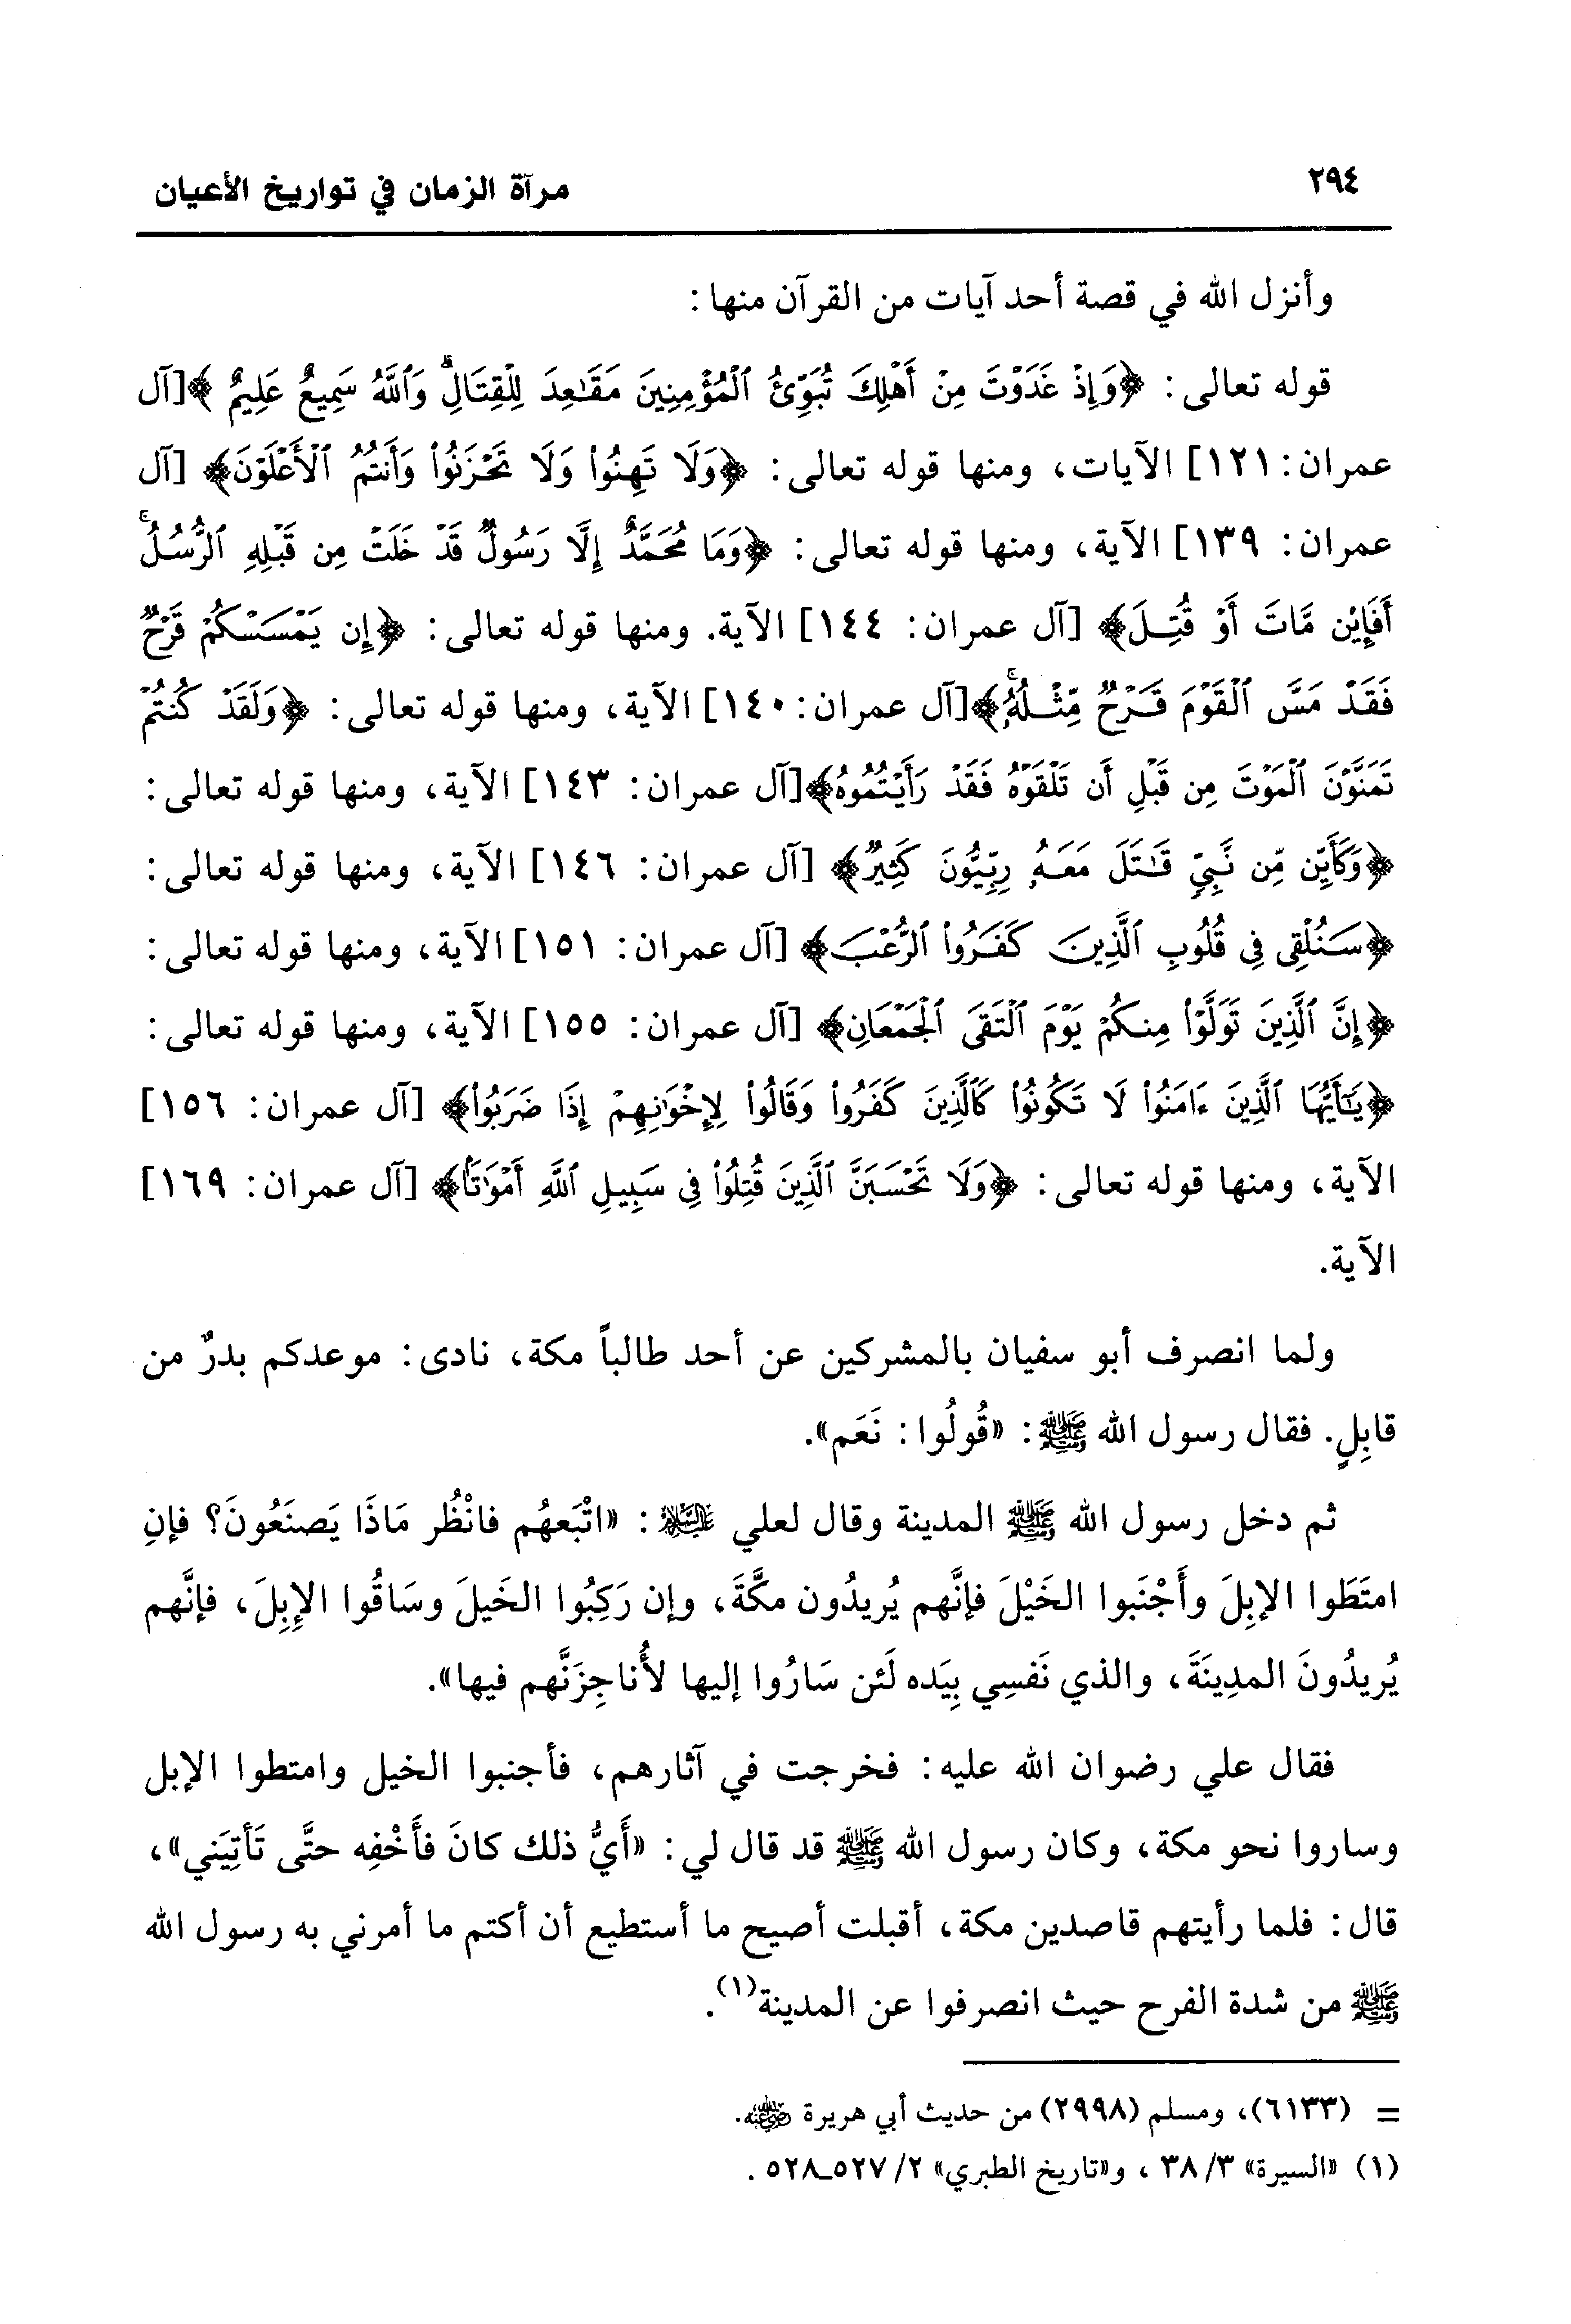 ٢٩٤
مرآة الزمان في تواريخ الأعيان
وأنزل الله في قصة أحد آيات من القرآن منها:
قوله تعالى: ﴿وَإِذْ غَدَوْتَ مِنْ أَهْلِكَ تُبَوِّئُ ٱلْمُؤْمِنِينَ مَقَٰعِدَ لِلْقِتَالِۗ وَٱللَّهُ سَمِيعٌ عَلِيمٌ﴾[آل
عمران: ١٢١] الآيات، ومنها قوله تعالى: ﴿وَلَا تَهِنُوا۟ وَلَا تَحْزَنُوا۟ وَأَنتُمُ ٱلْأَعْلَوْنَ﴾ [آل
عمران: ١٣٩] الآية، ومنها قوله تعالى: ﴿وَمَا مُحَمَّدٌ إِلَّا رَسُولٌ قَدْ خَلَتْ مِن قَبْلِهِ ٱلرُّسُلُۚ
أَفَإِيْن مَّاتَ أَوْ قُتِلَ﴾ [آل عمران: ١٤٤] الآية. ومنها قوله تعالى: ﴿إِن يَمْسَسْكُمْ قَرْحٌ
فَقَدْ مَسَّ ٱلْقَوْمَ قَرْحٌ مِّثْلُهُۥۚ﴾[آل عمران: ١٤٠] الآية، ومنها قوله تعالى: ﴿وَلَقَدْ كُنتُمْ
تَمَنَّوْنَ ٱلْمَوْتَ مِن قَبْلِ أَن تَلْقَوْهُ فَقَدْ رَأَيْتُمُوهُ﴾[آل عمران: ١٤٣] الآية، ومنها قوله تعالى:
﴿وَكَأَيِّن مِّن نَّبِيٍّ قَٰتَلَ مَعَهُۥ رِبِّيُّونَ كَثِيرٌ﴾ [آل عمران: ١٤٦] الآية، ومنها قوله تعالى:
﴿سَنُلْقِى فِى قُلُوبِ ٱلَّذِينَ كَفَرُوا۟ ٱلرُّعْبَ﴾ [آل عمران: ١٥١] الآية، ومنها قوله تعالى:
﴿إِنَّ ٱلَّذِينَ تَوَلَّوْا۟ مِنكُمْ يَوْمَ ٱلْتَقَى ٱلْجَمْعَانِ﴾ [آل عمران: ١٥٥] الآية، ومنها قوله تعالى:
﴿يَٰٓأَيُّهَا ٱلَّذِينَ ءَامَنُوا۟ لَا تَكُونُوا۟ كَٱلَّذِينَ كَفَرُوا۟ وَقَالُوا۟ لِإِخْوَٰنِهِمْ إِذَا ضَرَبُوا۟﴾ [آل عمران: ١٥٦]
الآية، ومنها قوله تعالى: ﴿وَلَا تَحْسَبَنَّ ٱلَّذِينَ قُتِلُوا۟ فِى سَبِيلِ ٱللَّهِ أَمْوَٰتًۢا﴾ [آل عمران: ١٦٩]
الآية.
ولما انصرف أبو سفيان بالمشركين عن أحد طالباً مكة، نادى: موعدكم بدرٌ من
قابِلٍ. فقال رسول الله ﷺ: «قُولُوا: نَعَم».
ثم دخل رسول الله ﷺ المدينة وقال لعلي عليه السلام: «اتْبَعهُم فانْظُر مَاذَا يَصنَعُونَ؟ فإنِ
امتَطَوا الإبِلَ وأَجْنَبوا الخَيْلَ فإنَّهم يُريدُون مكَّةَ، وإن رَكِبُوا الخَيلَ وسَاقُوا الإِبِلَ، فإنَّهم
يُريدُونَ المدِينَةَ، والذي نَفسِي بِيَده لَئن سَارُوا إليها لأُناجِزَنَّهم فيها».
فقال علي رضوان الله عليه: فخرجت في آثارهم، فأجنبوا الخيل وامتطوا الإبل
وساروا نحو مكة، وكان رسول الله ﷺ قد قال لي: «أَيُّ ذلك كانَ فأَخْفِه حتَّى تَأتِيَني»،
قال: فلما رأيتهم قاصدين مكة، أقبلت أصيح ما أستطيع أن أكتم ما أمرني به رسول الله
ﷺ من شدة الفرح حيث انصرفوا عن المدينة(١).
= (٦١٣٣)، ومسلم (٢٩٩٨) من حديث أبي هريرة رضي الله عنه.
(١) «السيرة» ٣/ ٣٨، و«تاريخ الطبري» ٢/ ٥٢٧ـ٥٢٨.